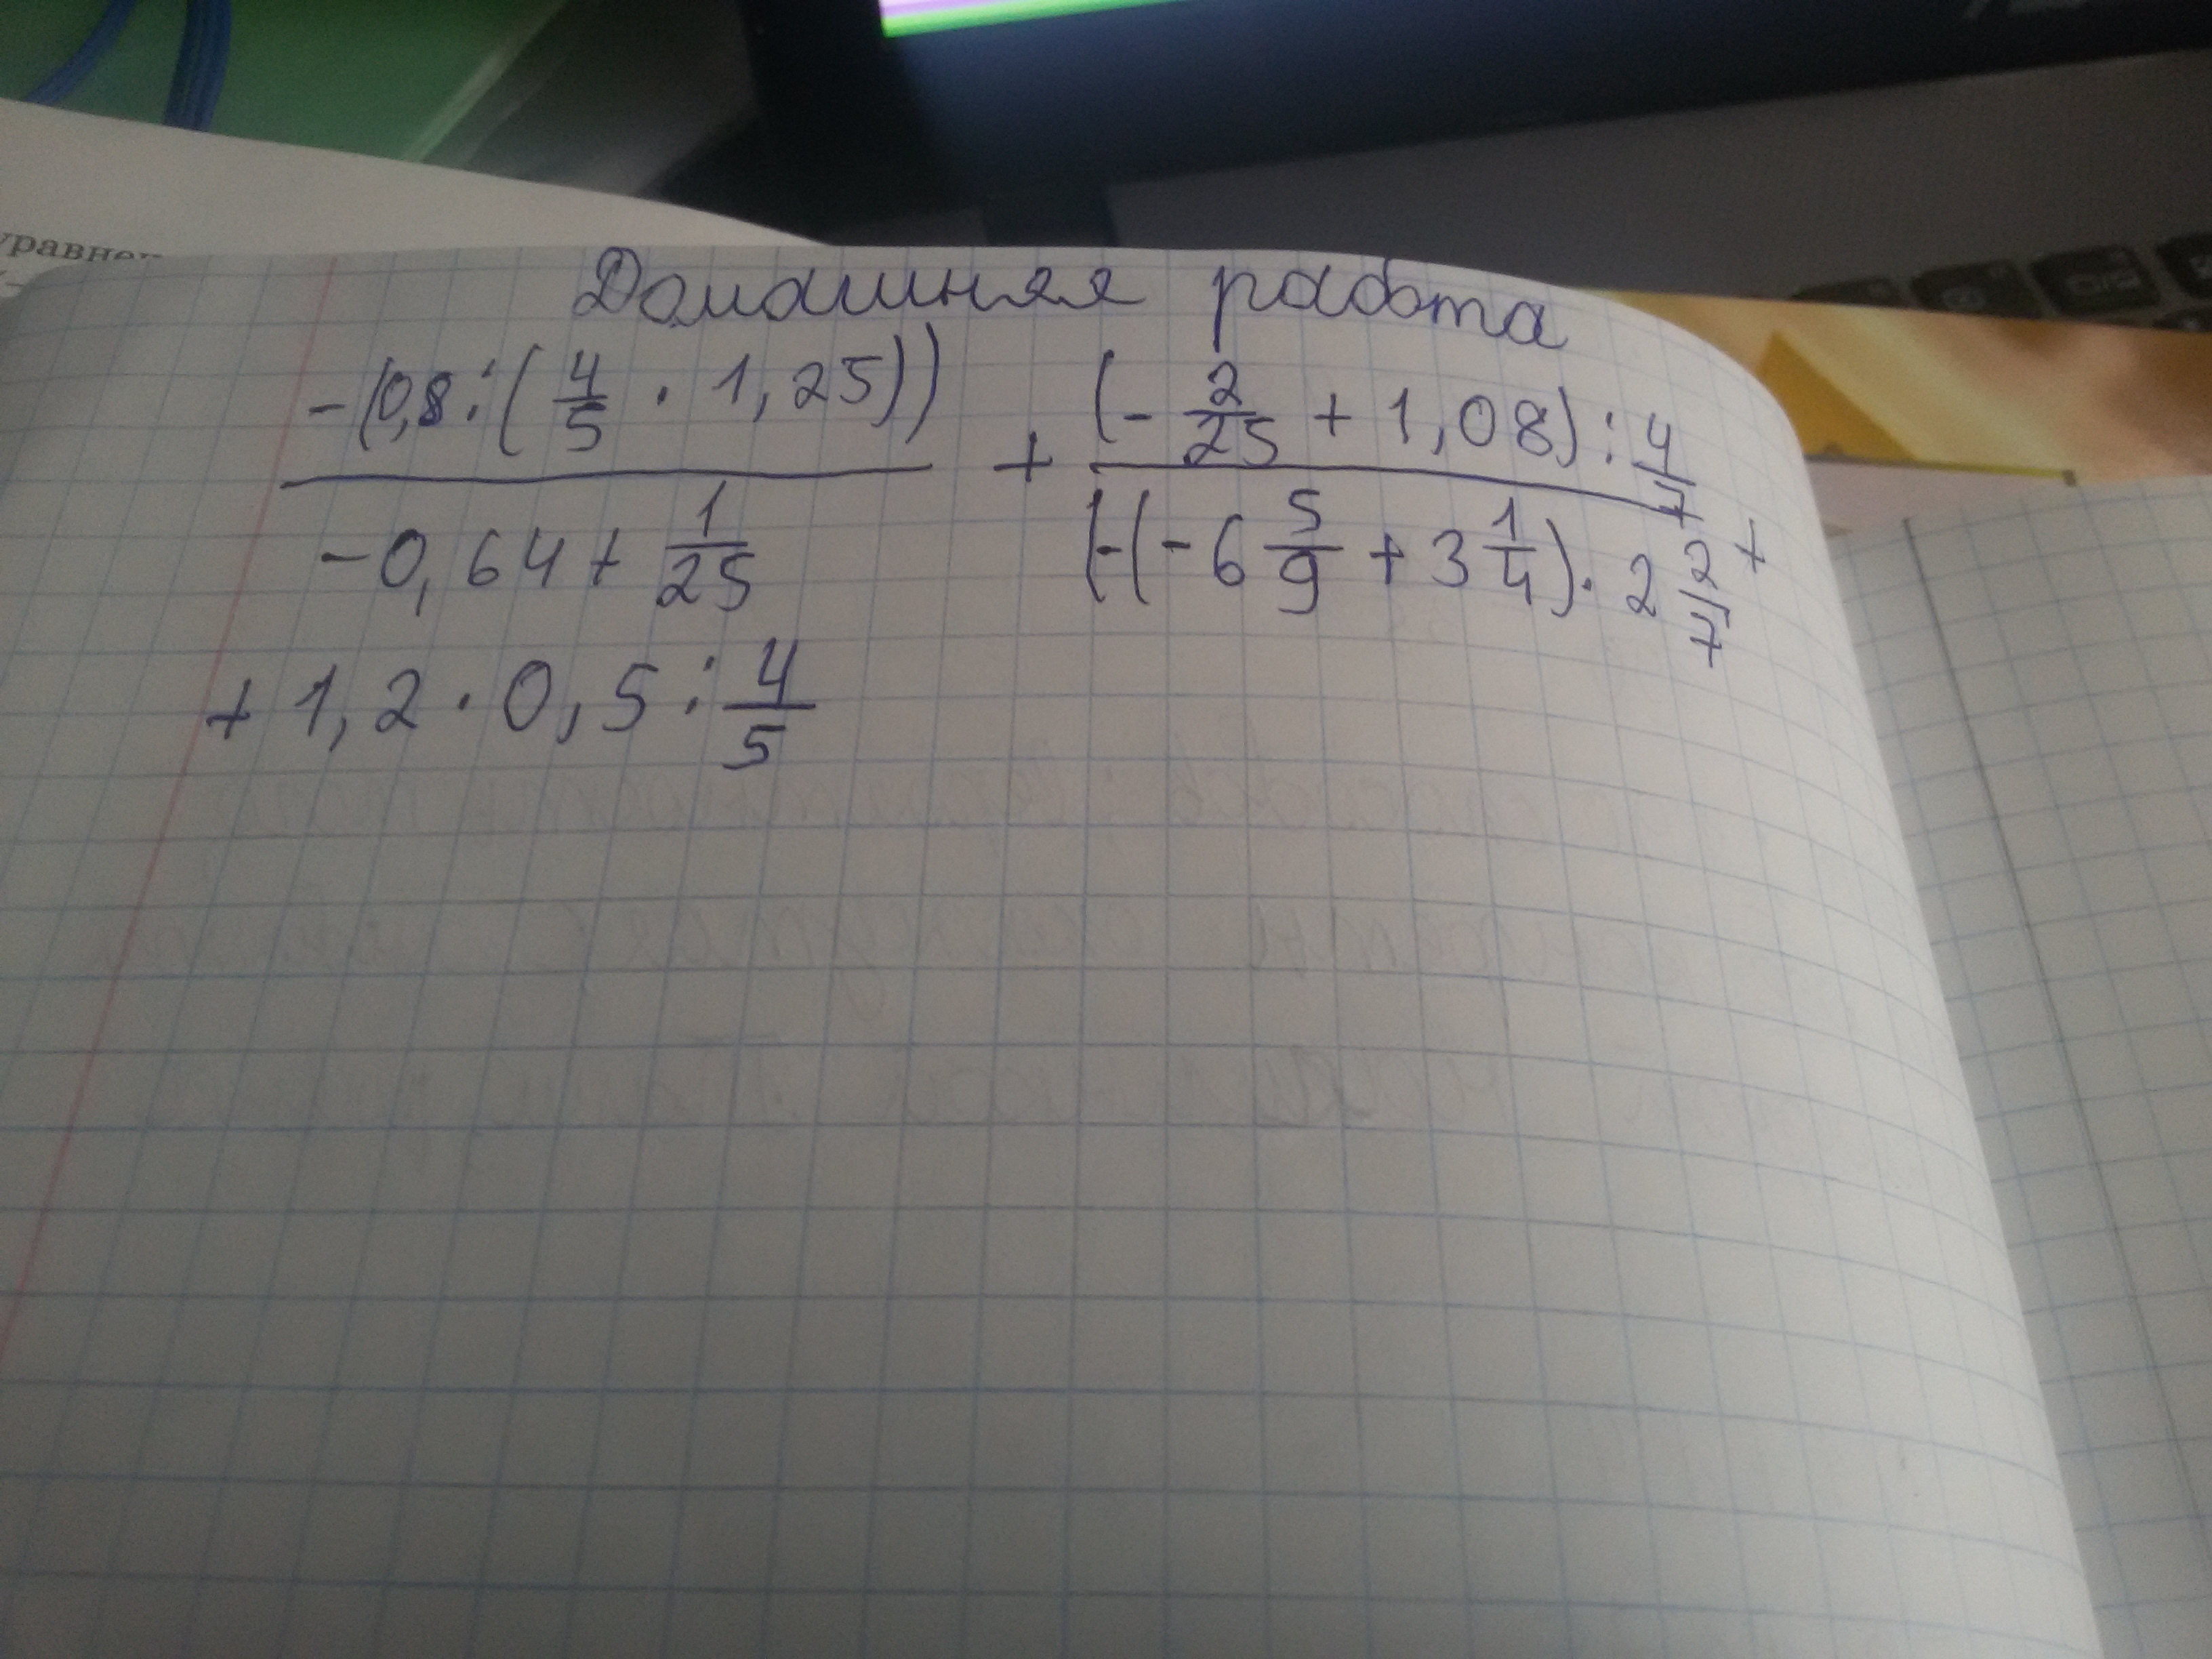 уравнен
Домашняя работа
-(0,8:(4/5 · 1,25)) / -0,64+1/25 + (-2/25+1,08):4/7 / (-(-6 5/9+3 1/4)·2 2/7 +
+ 1,2·0,5:4/5